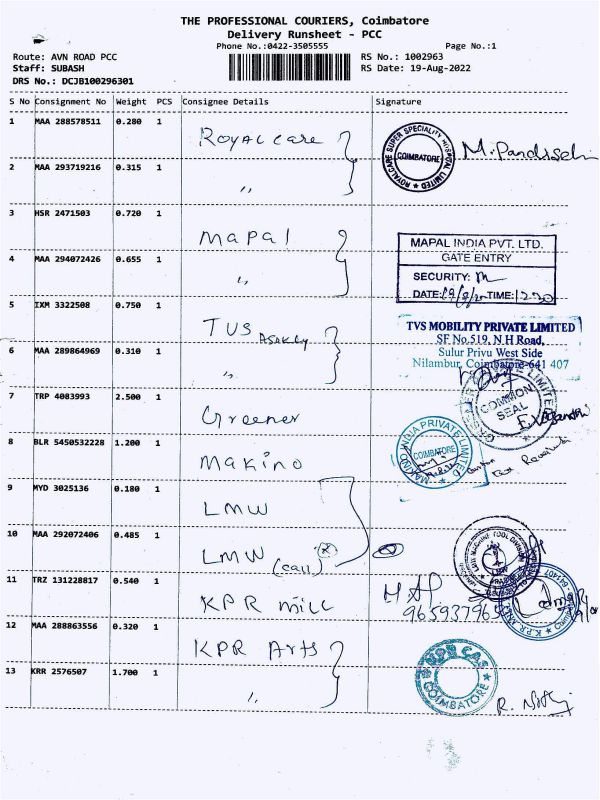 THE PROFESSIONAL COURIERS, Coimbatore
Delivery Runsheet - PCC
Phone No.:0422-3505555 Page No.:1
Route: AVN ROAD PCC RS No.: 1002963
Staff: SUBASH RS Date: 19-Aug-2022
DRS No.: DCJB100296301
S No Consignment No Weight PCS Consignee Details Signature
1 MAA 288578511 0.280 1 Royal care
ROYALCARE SUPER SPECIALITY HOSPITAL LIMITED
COIMBATORE
2 MAA 293719216 0.315 1 "
3 HSR 2471503 0.720 1 Mapal
MAPAL INDIA PVT. LTD.
GATE ENTRY
4 MAA 294072426 0.655 1 "
SECURITY:
DATE: TIME: 1220
5 IXM 3322508 0.750 1 TVS
TVS MOBILITY PRIVATE LIMITED
SF No.519, N H Road,
Sulur Privu West Side
Nilambur, Coimbatore-641 407
6 MAA 289864969 0.310 1 "
7 TRP 4083993 2.500 1 Greener
COMMON
SEAL
8 BLR 5450532228 1.200 1 Makino
MAKINO INDIA PRIVATE LIMITED
COIMBATORE
9 MYD 3025136 0.180 1 LMW
10 MAA 292072406 0.485 1 LMW (call)
11 TRZ 131228817 0.540 1 KPR mill
12 MAA 288863556 0.320 1 KPR Arts
13 KRR 2576507 1.700 1 "
COIMBATORE